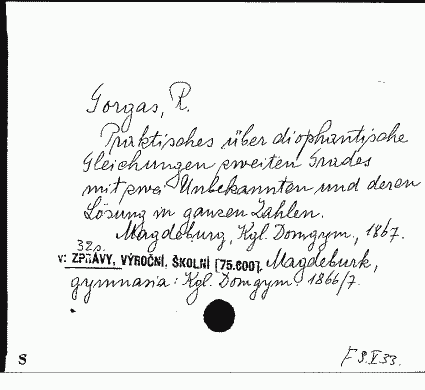 Gorgas, R.
Praktisches über diophantische
Gleichungen zweiten Grades
mit zwei Unbekannten und deren
Lösung in ganzen Zahlen.
Magdeburg, Kgl. Domgym., 1867.
32s.
v: ZPRÁVY, VÝROČNÍ, ŠKOLNÍ [75.600]. Magdeburk,
gymnasia: Kgl. Domgym. 1866/7.
S